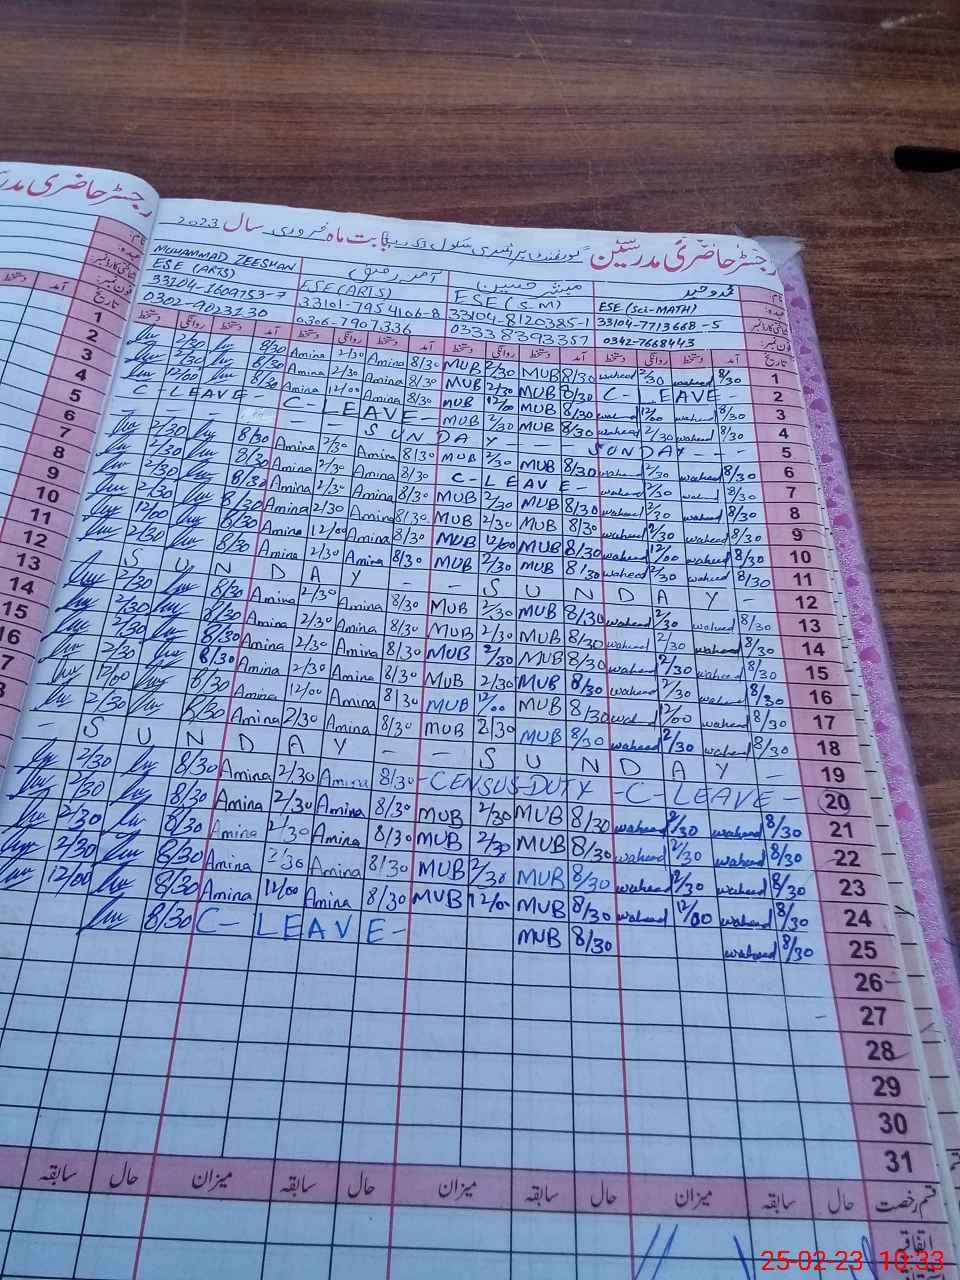 رجسٹر حاضری مدرسین گورنمنٹ پرائمری سکول بابت ماہ فروری سال 2023
رجسٹر حاضری
MUHAMMAD ZEESHAN مبشر حسین نام:
ESE (ARTS) ESE (ARTS) ESE (S.M) ESE (Sci-MATH) عہدہ:
33104-1609753-7 33101-7954106-8 33104-8120385-1 33104-7713668-5
0302-9023730 0306-7907336 03338393357 0342-7668443 فون نمبر:
دستخط روانگی دستخط آمد دستخط روانگی دستخط آمد دستخط روانگی دستخط آمد دستخط روانگی دستخط آمد تاریخ
2/30 8/30 Amina 2/30 Amina 8/30 MUB 2/30 MUB 8/30 waheed 2/30 waheed 8/30 1
2/30 8/30 Amina 2/30 Amina 8/30 MUB 2/30 MUB 8/30 C-LEAVE- 2
12/00 8/30 Amina 12/00 Amina 8/30 MUB 12/00 MUB 8/30 waheed 12/00 waheed 8/30 3
C-LEAVE- C-LEAVE- MUB 2/30 MUB 8/30 waheed 2/30 waheed 8/30 4
- - - - - - SUNDAY - - - SUNDAY - - - 5
2/30 8/30 Amina 2/30 Amina 8/30 MUB 2/30 MUB 8/30 waheed 2/30 waheed 8/30 6
2/30 8/30 Amina 2/30 Amina 8/30 C-LEAVE- waheed 2/30 waheed 8/30 7
2/30 8/30 Amina 2/30 Amina 8/30 MUB 2/30 MUB 8/30 waheed 2/30 waheed 8/30 8
2/30 8/30 Amina 2/30 Amina 8/30 MUB 2/30 MUB 8/30 waheed 2/30 waheed 8/30 9
12/00 8/30 Amina 12/00 Amina 8/30 MUB 12/00 MUB 8/30 waheed 12/00 waheed 8/30 10
2/30 8/30 Amina 2/30 Amina 8/30 MUB 2/30 MUB 8/30 waheed 2/30 waheed 8/30 11
- SUNDAY - - SUNDAY - 12
2/30 8/30 Amina 2/30 Amina 8/30 MUB 2/30 MUB 8/30 waheed 2/30 waheed 8/30 13
2/30 8/30 Amina 2/30 Amina 8/30 MUB 2/30 MUB 8/30 waheed 2/30 waheed 8/30 14
2/30 8/30 Amina 2/30 Amina 8/30 MUB 2/30 MUB 8/30 waheed 2/30 waheed 8/30 15
2/30 8/30 Amina 2/30 Amina 8/30 MUB 2/30 MUB 8/30 waheed 2/30 waheed 8/30 16
12/00 8/30 Amina 12/00 Amina 8/30 MUB 12/00 MUB 8/30 waheed 12/00 waheed 8/30 17
2/30 8/30 Amina 2/30 Amina 8/30 MUB 2/30 MUB 8/30 waheed 2/30 waheed 8/30 18
- SUNDAY - - SUNDAY - 19
2/30 8/30 Amina 2/30 Amina 8/30 -CENSUS-DUTY -C-LEAVE- 20
2/30 8/30 Amina 2/30 Amina 8/30 MUB 2/30 MUB 8/30 waheed 2/30 waheed 8/30 21
2/30 8/30 Amina 2/30 Amina 8/30 MUB 2/30 MUB 8/30 waheed 2/30 waheed 8/30 22
2/30 8/30 Amina 2/30 Amina 8/30 MUB 2/30 MUB 8/30 waheed 2/30 waheed 8/30 23
12/00 8/30 Amina 12/00 Amina 8/30 MUB 12/00 MUB 8/30 waheed 12/00 waheed 8/30 24
8/30 C-LEAVE- MUB 8/30 waheed 8/30 25
26
27
28
29
30
31
سابقہ حال میزان سابقہ حال میزان سابقہ حال میزان سابقہ حال قسم رخصت
اتفاقیہ
25-02-23 10:33